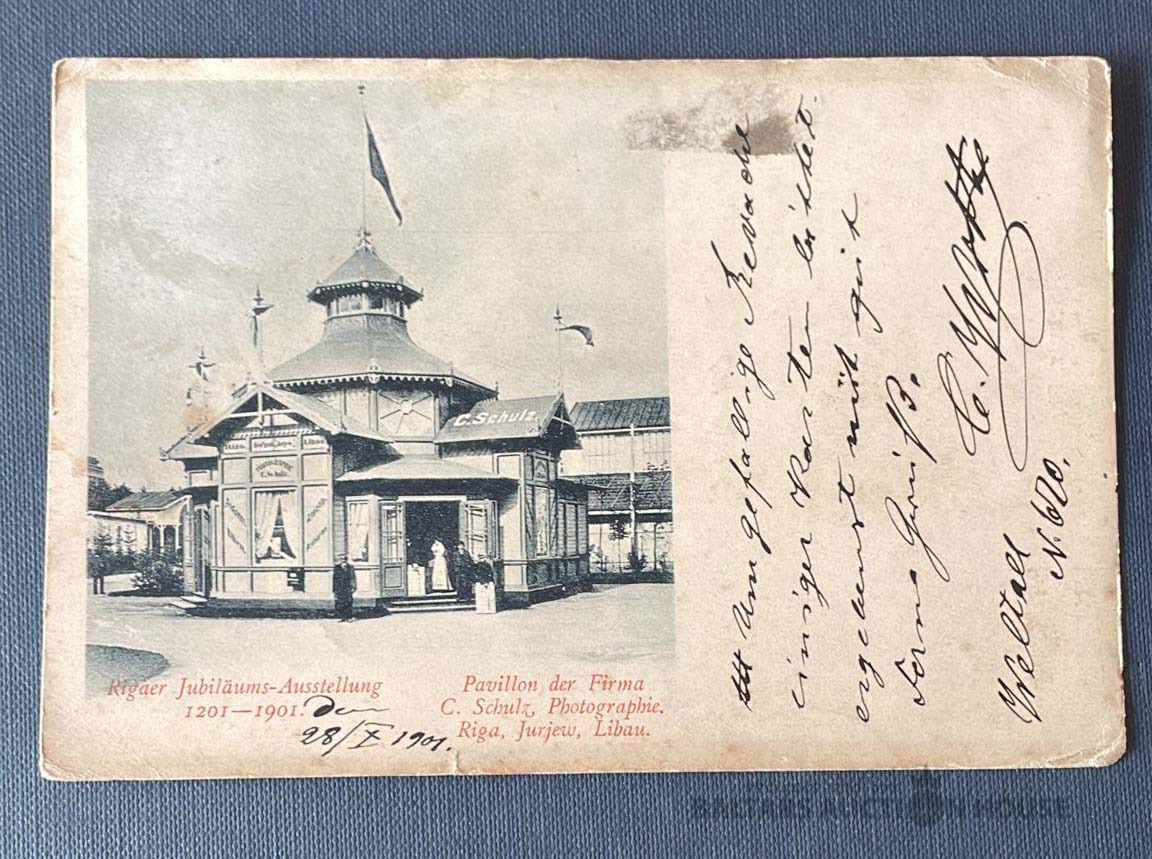 C. Schulz.
PHOTOGRAPHIE
C. Schulz.
Rigaer Jubiläums-Ausstellung
1201—1901.
Pavillon der Firma
C. Schulz, Photographie.
Riga, Jurjew, Libau.
Den
28/X 1901.
Um gefällige
einiger Karten bittet
ergebenst mit gut
ferns Gruß.
C.
Weltall
N. 620.
BALTARS AUCTION HOUSE